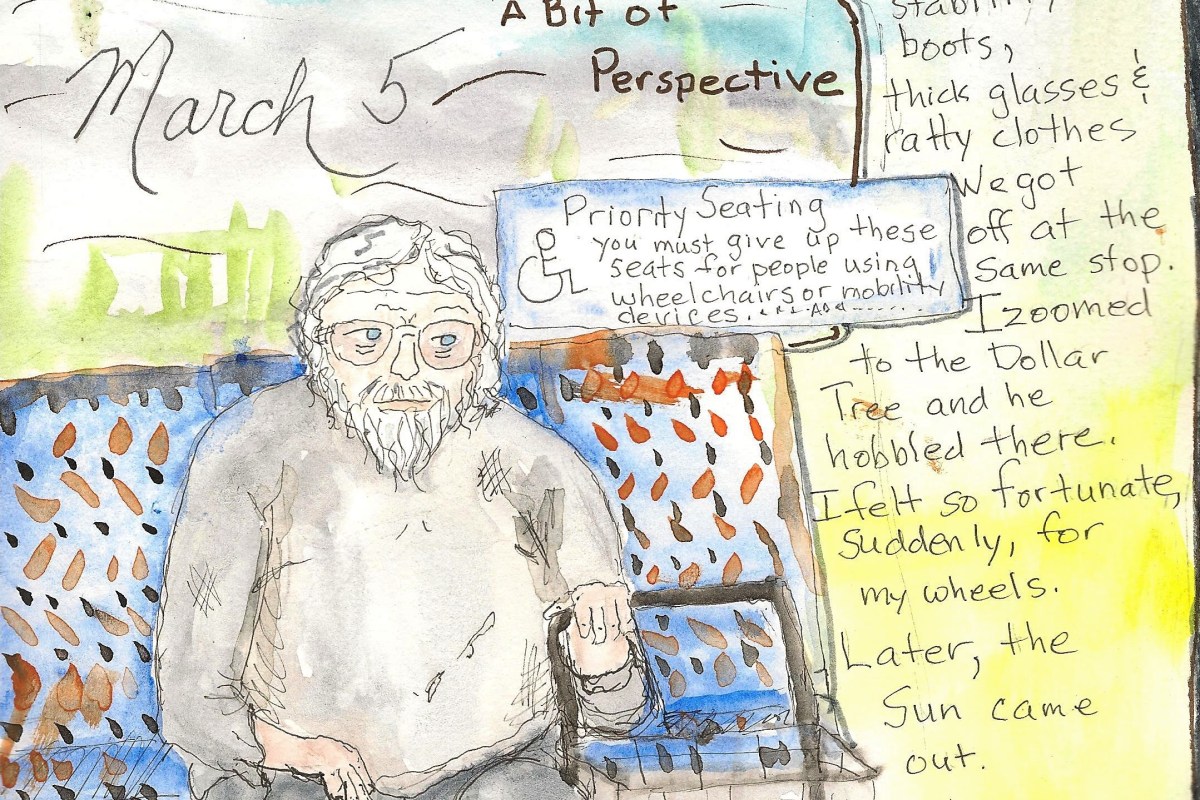 A Bit of
Perspective
March 5
Priority Seating
you must give up these
seats for people using
wheelchairs or mobility
devices.
stability
boots,
thick glasses &
ratty clothes
We got
off at the
same stop.
I zoomed
to the Dollar
Tree and he
hobbled there.
I felt so fortunate,
suddenly, for
my wheels.
Later, the
Sun came
out.